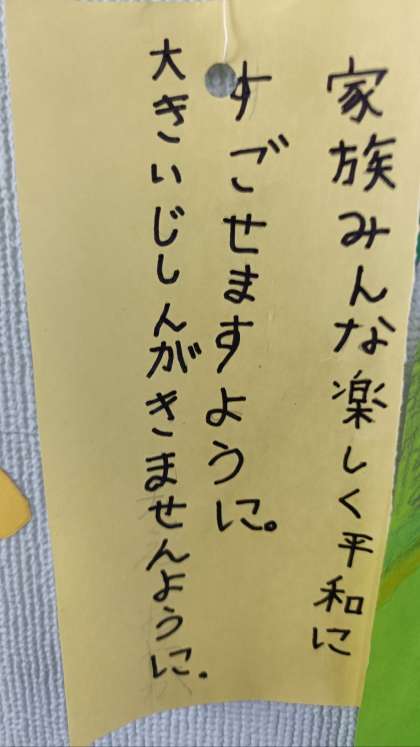 家族みんな楽しく平和に
すごせますように。
大きいじしんがきませんように.